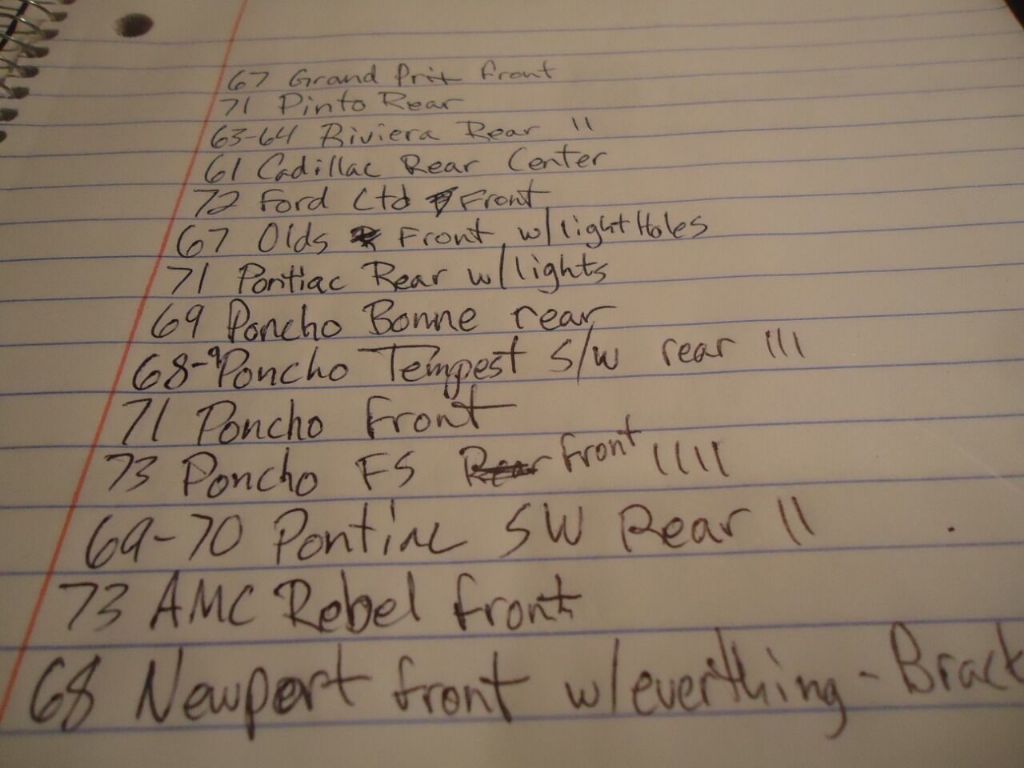 67 Grand Prix front
71 Pinto Rear
63-64 Riviera Rear ||
61 Cadillac Rear Center
72 Ford Ltd Front
67 Olds Front w/light Holes
71 Pontiac Rear w/lights
69 Poncho Bonne rear
68-9 Poncho Tempest S/W rear |||
71 Poncho Front
73 Poncho FS Rear front ||||
69-70 Pontiac SW Rear ||
73 AMC Rebel front
68 Newport front w/everthing - Brack